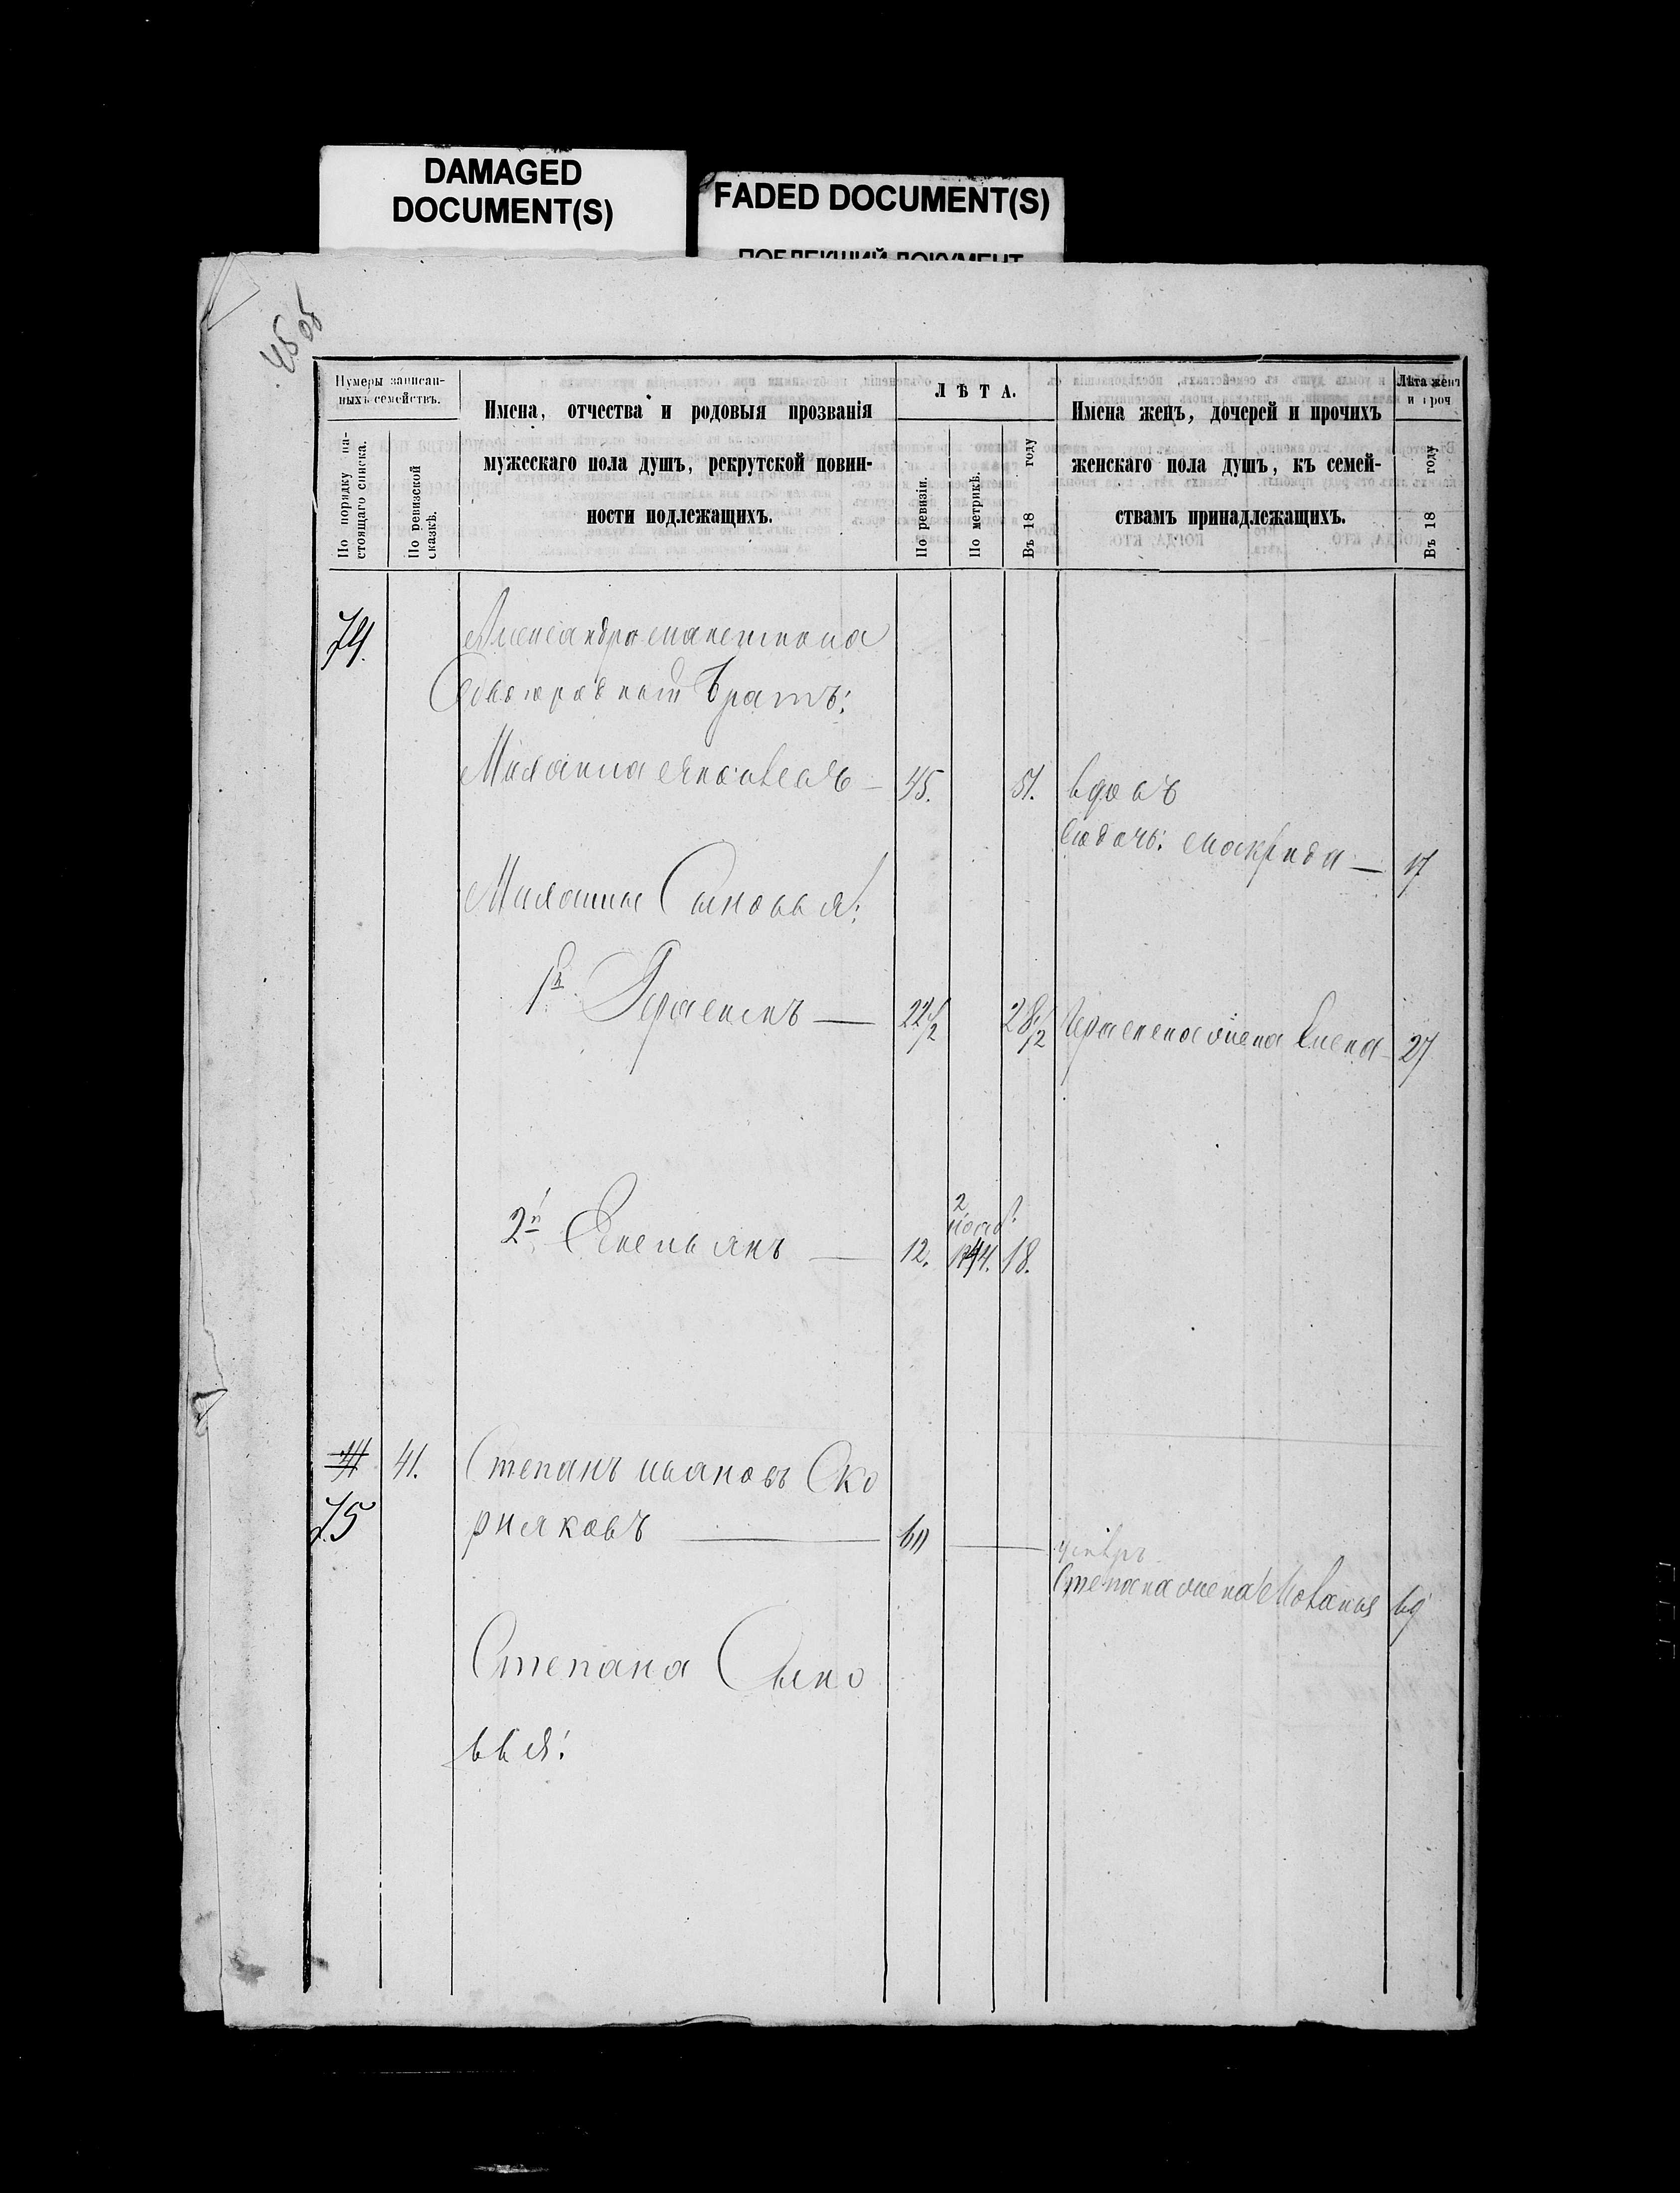 DAMAGED
DOCUMENT(S)
FADED DOCUMENT(S)
ПОБЛЕКШИЙ ДОКУМЕНТ
45 об
Нумеры записан-
ныхъ семействъ.
По порядку на-
стоящаго списка.
По ревизской
сказкѣ.
Имена, отчества и родовыя прозванія
мужескаго пола душъ, рекрутской повин-
ности подлежащихъ.
ЛѢТА.
По ревизіи.
По метрикѣ.
Въ 18 году
Имена женъ, дочерей и прочихъ
женскаго пола душъ, къ семей-
ствамъ принадлежащихъ.
Лѣта женъ
и проч
Въ 18 году
74.
Александра
Двоюродный братъ:
Яковлевъ — 45. 51. вдовъ
дочь: Макрида — 17
Сыновья:
1й Герасимъ — 22 1/2 28 1/2 Герасима жена Елена 27
2й Емельянъ — 12. 2 нояб. 1844. 18.
41.
75
Степанъ ивановъ Ско
рняковъ — 60
Степана жена 69
Степана Сыно
вья: